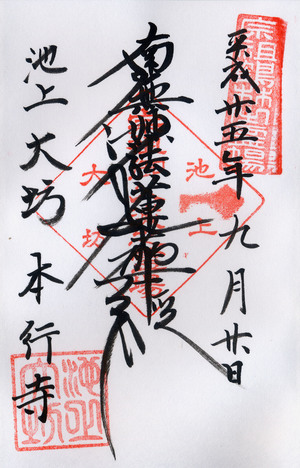 平成廿五年九月廿日
南無妙法蓮華経
池上
大坊
池上大坊 本行寺